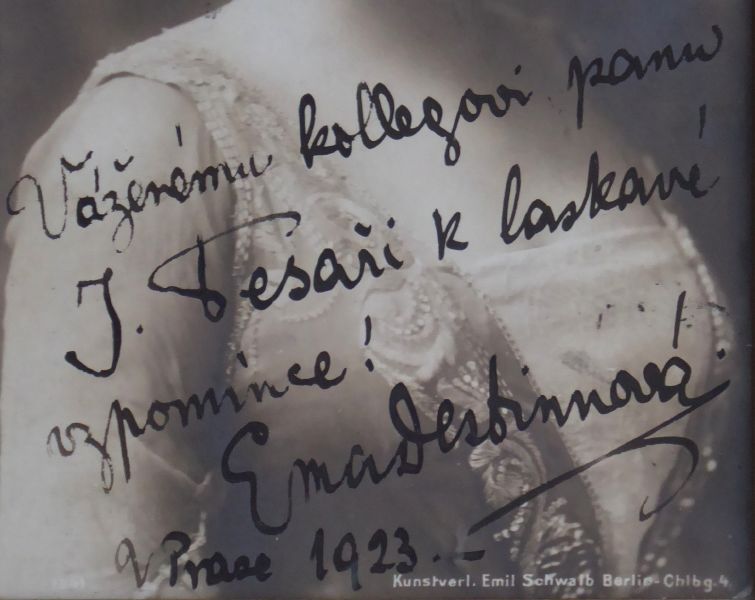 Váženému kollegovi panu
J. Tesaři k laskavé
vzpomínce!
Ema Destinnová.
V Praze 1923.—
Kunstverl. Emil Schwalb Berlin-Chlbg. 4.